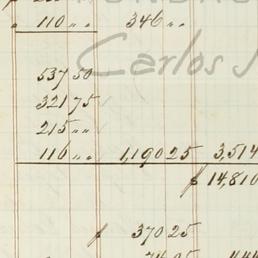 " 110 " " 346 " "
Carlos
537 50
321 75
215 " "
116 " " 1,190 25 3,514
$ 14,810
$ 370 25